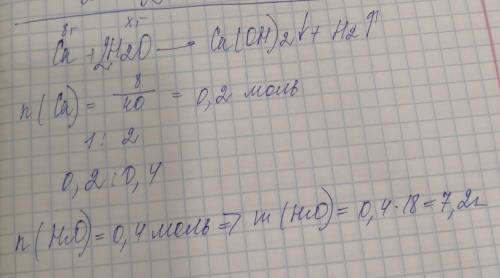 8г xг
Ca + 2H2O → Ca(OH)2↓ + H2↑
n(Ca) = 8/40 = 0,2 моль
1 : 2
0,2 : 0,4
n(H2O) = 0,4 моль => m(H2O) = 0,4·18 = 7,2г